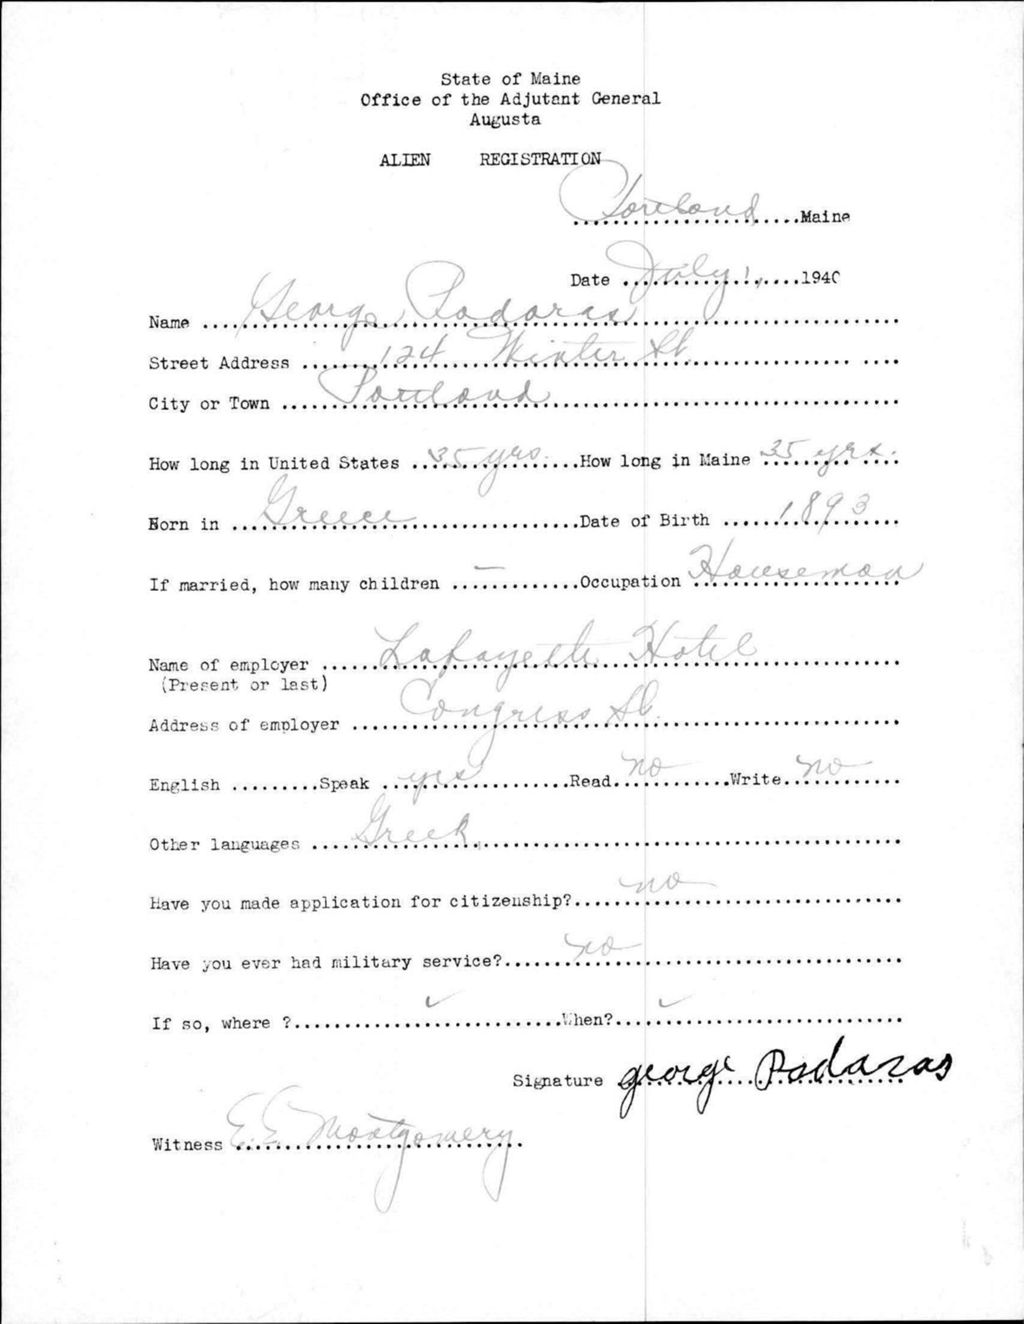 State of Maine
Office of the Adjutant General
Augusta
ALIEN REGISTRATION
Portland Maine
Date July 1, 1940
Name George Podaras
Street Address 124 Winter St.
City or Town Portland
How long in United States 35 yrs. How long in Maine 35 yrs.
Born in Greece Date of Birth 1893
If married, how many children — Occupation Houseman
Name of employer Lafayette Hotel
(Present or last)
Address of employer Congress St.
English Speak yes Read no Write no
Other languages Greek
Have you made application for citizenship? no
Have you ever had military service? no
If so, where ? ✓ When? ✓
Signature george Podaras
Witness E. E. Montgomery